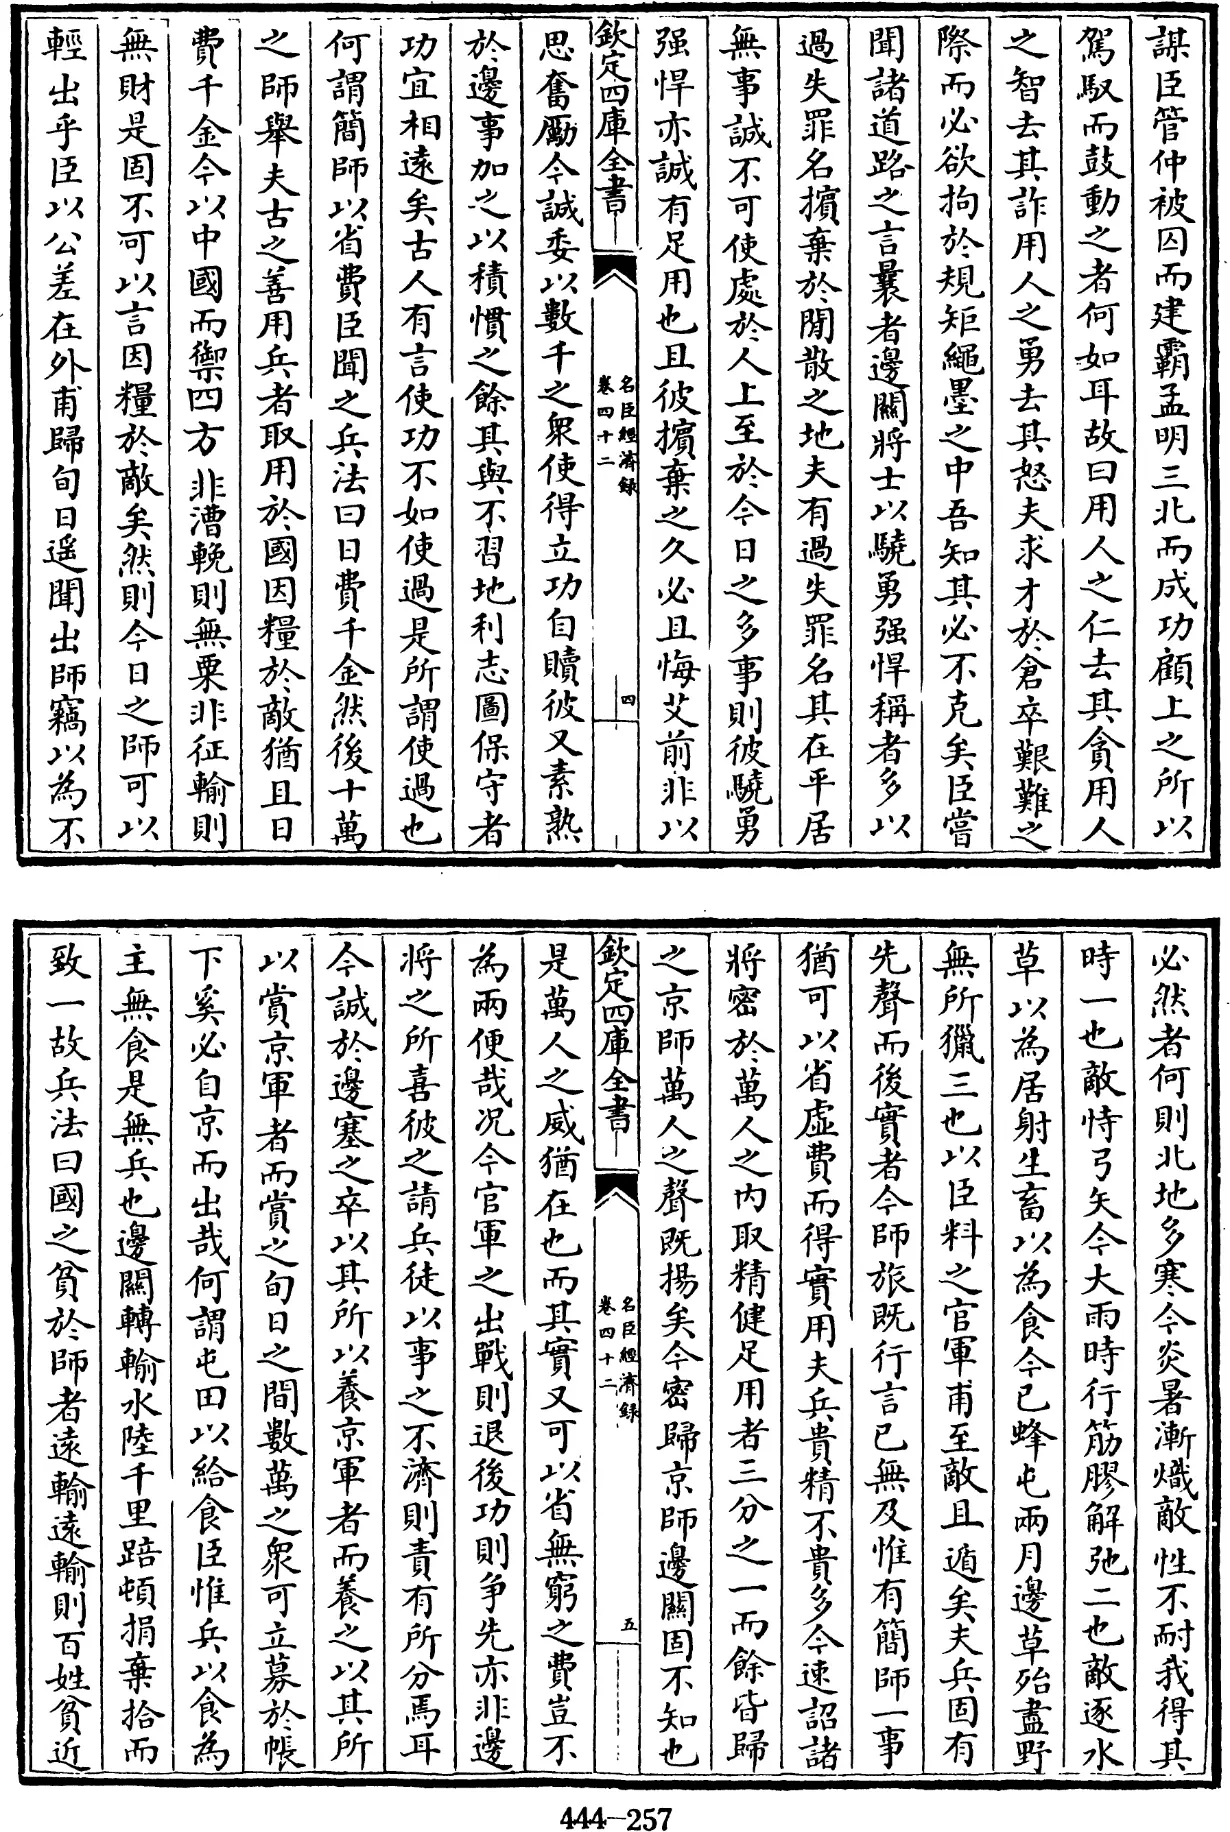 謀臣管仲被囚而建霸孟明三北而成功顧上之所以
駕馭而鼓動之者何如耳故曰用人之仁去其貪用人
之智去其詐用人之勇去其怒夫求才於倉卒艱難之
際而必欲拘於規矩繩墨之中吾知其必不克矣臣嘗
聞諸道路之言曩者邊關將士以驍勇强悍稱者多以
過失罪名擯棄於閒散之地夫有過失罪名其在平居
無事誠不可使處於人上至於今日之多事則彼驍勇
强悍亦誠有足用也且彼擯棄之久必且悔艾前非以
欽定四庫全書
名臣經濟錄
卷四十二
四
思奮勵今誠委以數千之衆使得立功自贖彼又素熟
於邊事加之以積慣之餘其與不習地利志圖保守者
功宜相遠矣古人有言使功不如使過是所謂使過也
何謂簡師以省費臣聞之兵法曰日費千金然後十萬
之師舉夫古之善用兵者取用於國因糧於敵猶且日
費千金今以中國而禦四方非漕輓則無粟非征輸則
無財是固不可以言因糧於敵矣然則今日之師可以
輕出乎臣以公差在外甫歸旬日遥聞出師竊以為不
必然者何則北地多寒今炎暑漸熾敵性不耐我得其
時一也敵恃弓矢今大雨時行筋膠解弛二也敵逐水
草以為居射生畜以為食今已蜂屯兩月邊草殆盡野
無所獵三也以臣料之官軍甫至敵且遁矣夫兵固有
先聲而後實者今師旅既行言已無及惟有簡師一事
猶可以省虛費而得實用夫兵貴精不貴多今速詔諸
將密於萬人之内取精健足用者三分之一而餘皆歸
之京師萬人之聲既揚矣今密歸京師邊關固不知也
欽定四庫全書
名臣經濟錄
卷四十二
五
是萬人之威猶在也而其實又可以省無窮之費豈不
為兩便哉况今官軍之出戰則退後功則争先亦非邊
將之所喜彼之請兵徒以事之不濟則責有所分焉耳
今誠於邊塞之卒以其所以養京軍者而養之以其所
以賞京軍者而賞之旬日之間數萬之衆可立募於帳
下奚必自京而出哉何謂屯田以給食臣惟兵以食為
主無食是無兵也邊關轉輸水陸千里踣頓捐棄拾而
致一故兵法曰國之貧於師者遠輸遠輸則百姓貧近
444-257